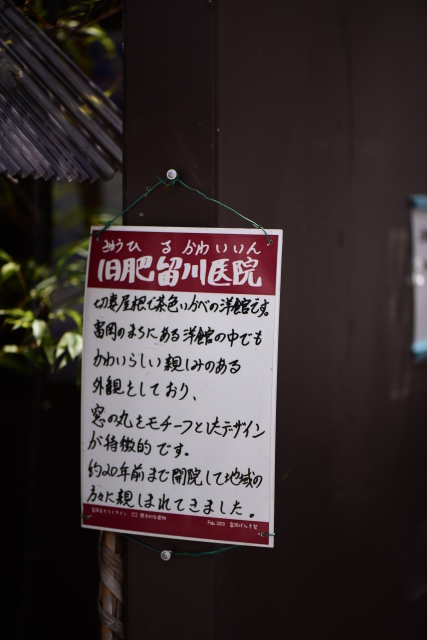 きゅうひ る かわ いいん
旧肥留川医院
切妻屋根で茶色いかべの洋館です。
富岡のまちにある洋館の中でも
かわいらしい親しみのある
外観をしており、
窓の丸をモチーフとしたデザイン
が特徴的です。
約20年前まで開院して地域の
方々に親しまれてきました。